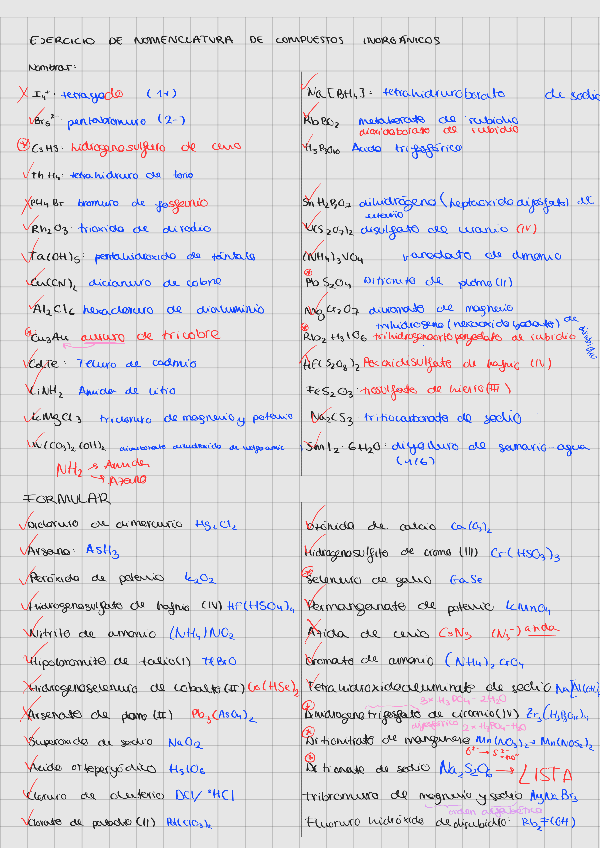 EJERCICIO DE NOMENCLATURA DE COMPUESTOS INORGÁNICOS
Nombrar:
I₄⁺: tetrayodo (1+)
Br₅²⁻: pentabromuro (2-)
CsHS: hidrogenosulfuro de cesio
ThH₄: tetrahidruro de torio
PH₄Br bromuro de fosfanio
Rh₂O₃: trióxido de dirodio
Ta(OH)₅: pentahidróxido de tántalo
Cu(CN)₂ dicianuro de cobre
Al₂Cl₆ hexacloruro de dialuminio
Cu₃Au aururo de tricobre
CdTe: Telururo de cadmio
LiNH₂ Amida de litio
KMgCl₃ tricloruro de magnesio y potasio
(CO₃)₂(OH)₂
NH₂ → Amida
→ Azano
Na[BH₄]: tetrahidruroborato de sodio
RbBO₂ metaborato de rubidio
dioxidoborato de rubidio
H₅P₃O₁₀ Ácido trifosfórico
SnH₂P₂O₇ dihidrógeno (heptaoxido difosfato) de estaño
U(S₂O₇)₂ disulfato de uranio (IV)
(NH₄)₃VO₄ vanadato de amonio
PbS₂O₄ Ditionito de plomo (II)
MgCr₂O₇ dicromato de magnesio
trihidrogeno (hexaoxido yodato) de dirubidio
Rb₂H₃IO₆ trihidrogenoortoperyodato de rubidio
Hf(S₂O₈)₂ Peroxidisulfato de hafnio (IV)
FeS₂O₃: tiosulfato de hierro (II)
Na₂CS₃ tritiocarbonato de sodio
SmI₂·6H₂O: diyoduro de samario-agua
(1/6)
FORMULAR
dicloruro de dimercurio Hg₂Cl₂
Arsano: AsH₃
Peróxido de potasio K₂O₂
Hidrogenosulfato de hafnio (IV) Hf(HSO₄)₄
Nitrito de amonio (NH₄)NO₂
Hipobromito de talio(I) TlBrO
Hidrogenoseleniuro de cobalto(II) Co(HSe)₂
Arsenato de plomo (II) Pb₃(AsO₄)₂
Superóxido de sodio NaO₂
Ácido ortoperyódico H₅IO₆
Cloruro de deuterio DCl/ ²HCl
Clorato de paladio (II) Pd(ClO₃)₂
Ozónido de calcio Ca(O₃)₂
Hidrogenosulfito de cromo (III) Cr(HSO₃)₃
Selenuro de galio GaSe
Permanganato de potasio KMnO₄
Azida de cesio CsN₃ (N₃⁻) azida
Cromato de amonio (NH₄)₂CrO₄
Tetrahidroxidoaluminato de sodio Na[Al(OH)₄]
3×H₃PO₄ - 2H₂O
Dihidrogenotrifosfato de circonio(IV) Zr₃(H₂P₃O₁₀)₄
2×H₃PO₄-H₂O
Ditionato de manganeso
Ditionato de sodio Na₂S₂O₆ → LISTA
tribromuro de magnesio y sodio MgNaBr₃
orden alfabético
Fluoruro hidróxido de dirubidio: Rb₂F(OH)